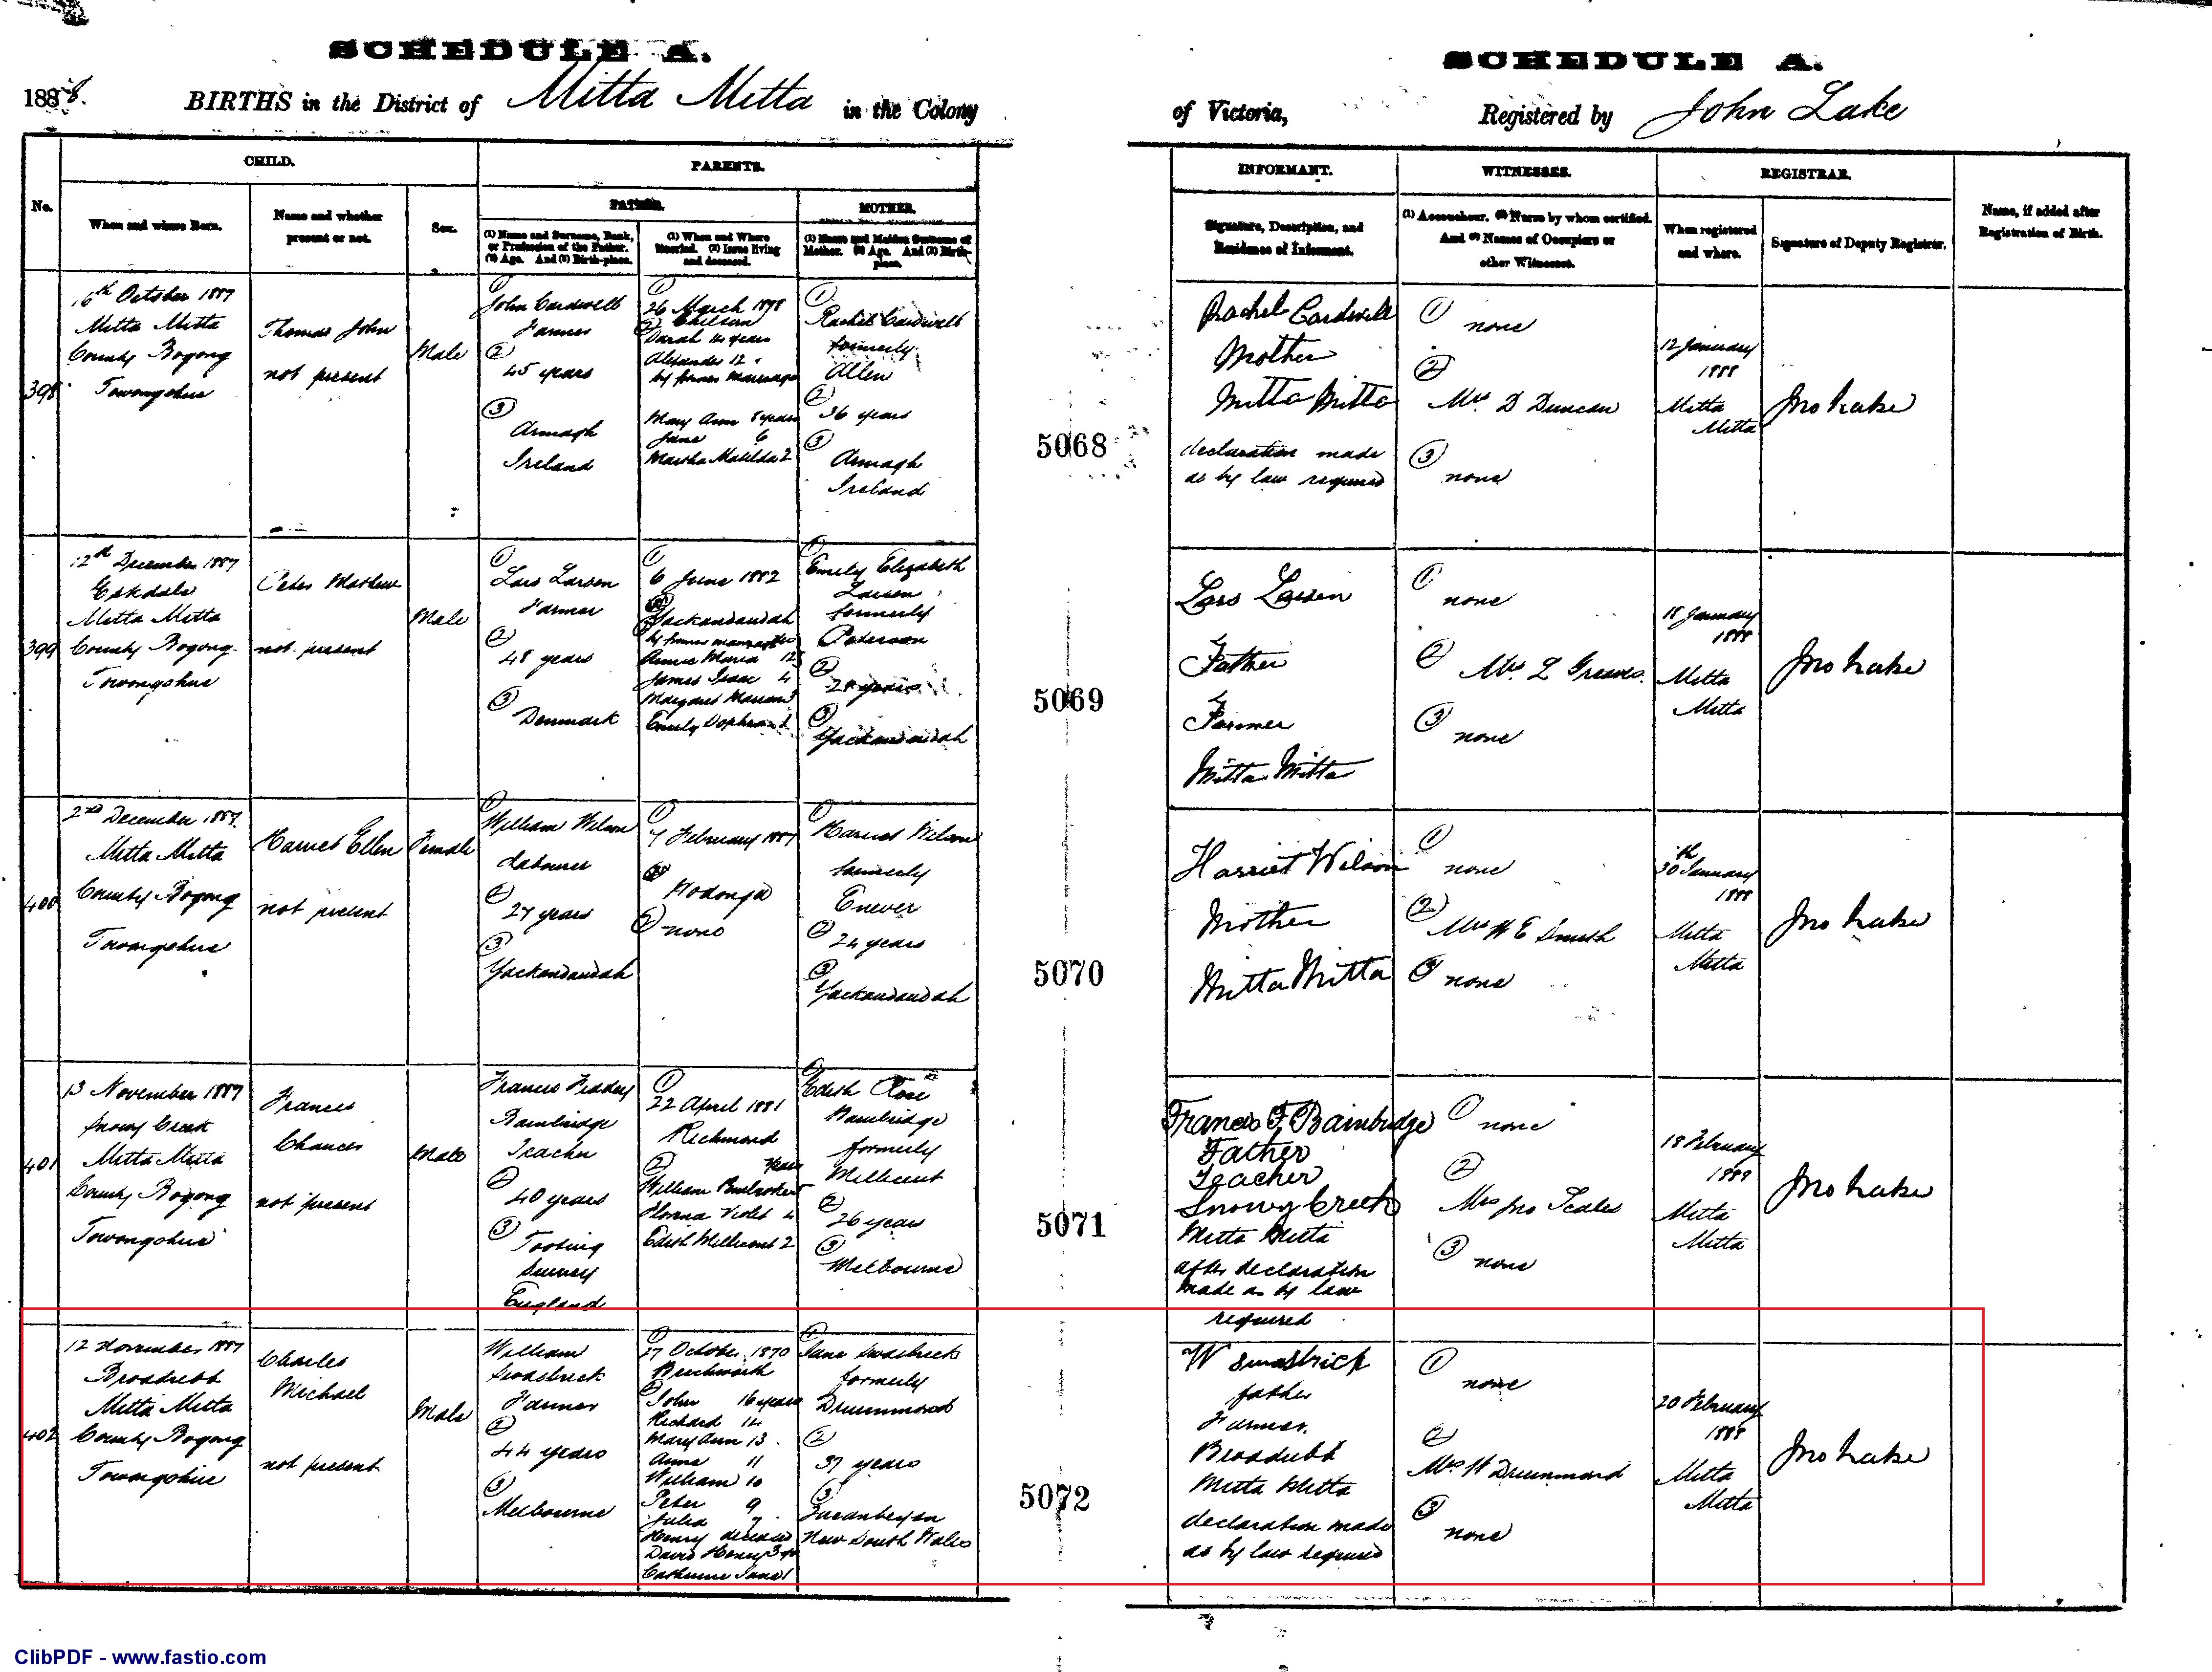 SCHEDULE A.
SCHEDULE A.
1888. BIRTHS in the District of Mitta Mitta in the Colony
of Victoria, Registered by John Lake
CHILD.
PARENTS.
INFORMANT.
WITNESSES.
REGISTRAR.
No.
When and where Born.
Name and whether
present or not.
Sex.
FATHER.
MOTHER.
(1) Name and Surname, Rank,
or Profession of the Father.
(2) Age. And (3) Birth-place.
(1) When and Where
Married. (2) Issue living
and deceased.
(1) Name and Maiden Surname of
Mother. (2) Age. And (3) Birth-
place.
Signature, Description, and
Residence of Informant.
(1) Accoucheur. (2) Nurse by whom certified.
And (3) Names of Occupiers or
other Witnesses.
When registered
and where.
Signature of Deputy Registrar.
Name, if added after
Registration of Birth.
398
16th October 1887
Mitta Mitta
County Bogong
Towongshire
Thomas John
not present
Male
1
John Cardwell
Farmer
2
45 years
3
Armagh
Ireland
1
26 March 1878
2 Chiltern
Sarah 14 years
Alexander 12
by former marriage
Mary Ann 8 years
Jane 6
Martha Matilda 2
1
Rachel Cardwell
formerly
Allen
2
36 years
3
Armagh
Ireland
5068
Rachel Cardwell
Mother
Mitta Mitta
declaration made
as by law required
1
none
2
Mrs. D Duncan
3
none
12 January
1888
Mitta
Mitta
Jno Lake
399
12th December 1887
Eskdale
Mitta Mitta
County Bogong
Towongshire
Peter Mathew
not present
Male
1
Lars Larsen
Farmer
2
48 years
3
Denmark
1
6 June 1882
Yackandandah
by former marriage
Annie Maria 12
James Isaac 4
Margaret Marian 3
Emily Sophia 1
1
Emily Elizabeth
Larsen
formerly
Peterson
2
years
3
Yackandandah
5069
Lars Larsen
Father
Farmer
Mitta Mitta
1
none
2
Mrs L Greaves.
3
none
18 January
1888
Mitta
Mitta
Jno Lake
400
2nd December 1887.
Mitta Mitta
County Bogong
Towongshire
Harriet Ellen
not present
Female
1
William Wilson
Labourer
2
27 years
3
Yackandandah
1
7 February 1887
Wodonga
2 none
1
Harriet Wilson
formerly
Enever
2
24 years
3
Yackandandah
5070
Harriet Wilson
Mother
Mitta Mitta
1
none
2
Mrs W E Smith
3
none
30th January
1888
Mitta
Mitta
Jno Lake
401
13 November 1887
Snowy Creek
Mitta Mitta
County Bogong
Towongshire
Francis
Chances
not present
Male
Francis
Bainbridge
Teacher
2
40 years
3
Tooting
Surrey
England
1
22 April 1881
Richmond
2 Years
William Pembroke 5
Florence Violet 4
Edith Millicent 2
1
Edith Rose
Bainbridge
formerly
Millicent
2
26 years
3
Melbourne
5071
Francis F. Bainbridge
Father
Teacher
Snowy Creek
Mitta Mitta
after declaration
made as by law
required
1
none
2
Mrs Jno Scales
3
none
18 February
1888
Mitta
Mitta
Jno Lake
402
12 November 1887
Broadubb
Mitta Mitta
County Bogong
Towongshire
Charles
Michael
not present
Male
William
Swasbrick
Farmer
2
44 years
3
Melbourne
1
27 October 1870
Beechworth
2 John 16 years
Richard 14
Mary Ann 13
Anne 11
William 10
Peter 9
Julia 7
Henry deceased
David Henry 3
Catherine Jane 1
1
Jane Swasbrick
formerly
Drummond
2
37 years
3
Queanbeyan
New South Wales
5072
W Swasbrick
father
Farmer.
Broadubb
Mitta Mitta
declaration made
as by law required
1
none
2
Mrs W Drummond
3
none
20 February
1888
Mitta
Mitta
Jno Lake
ClibPDF - www.fastio.com